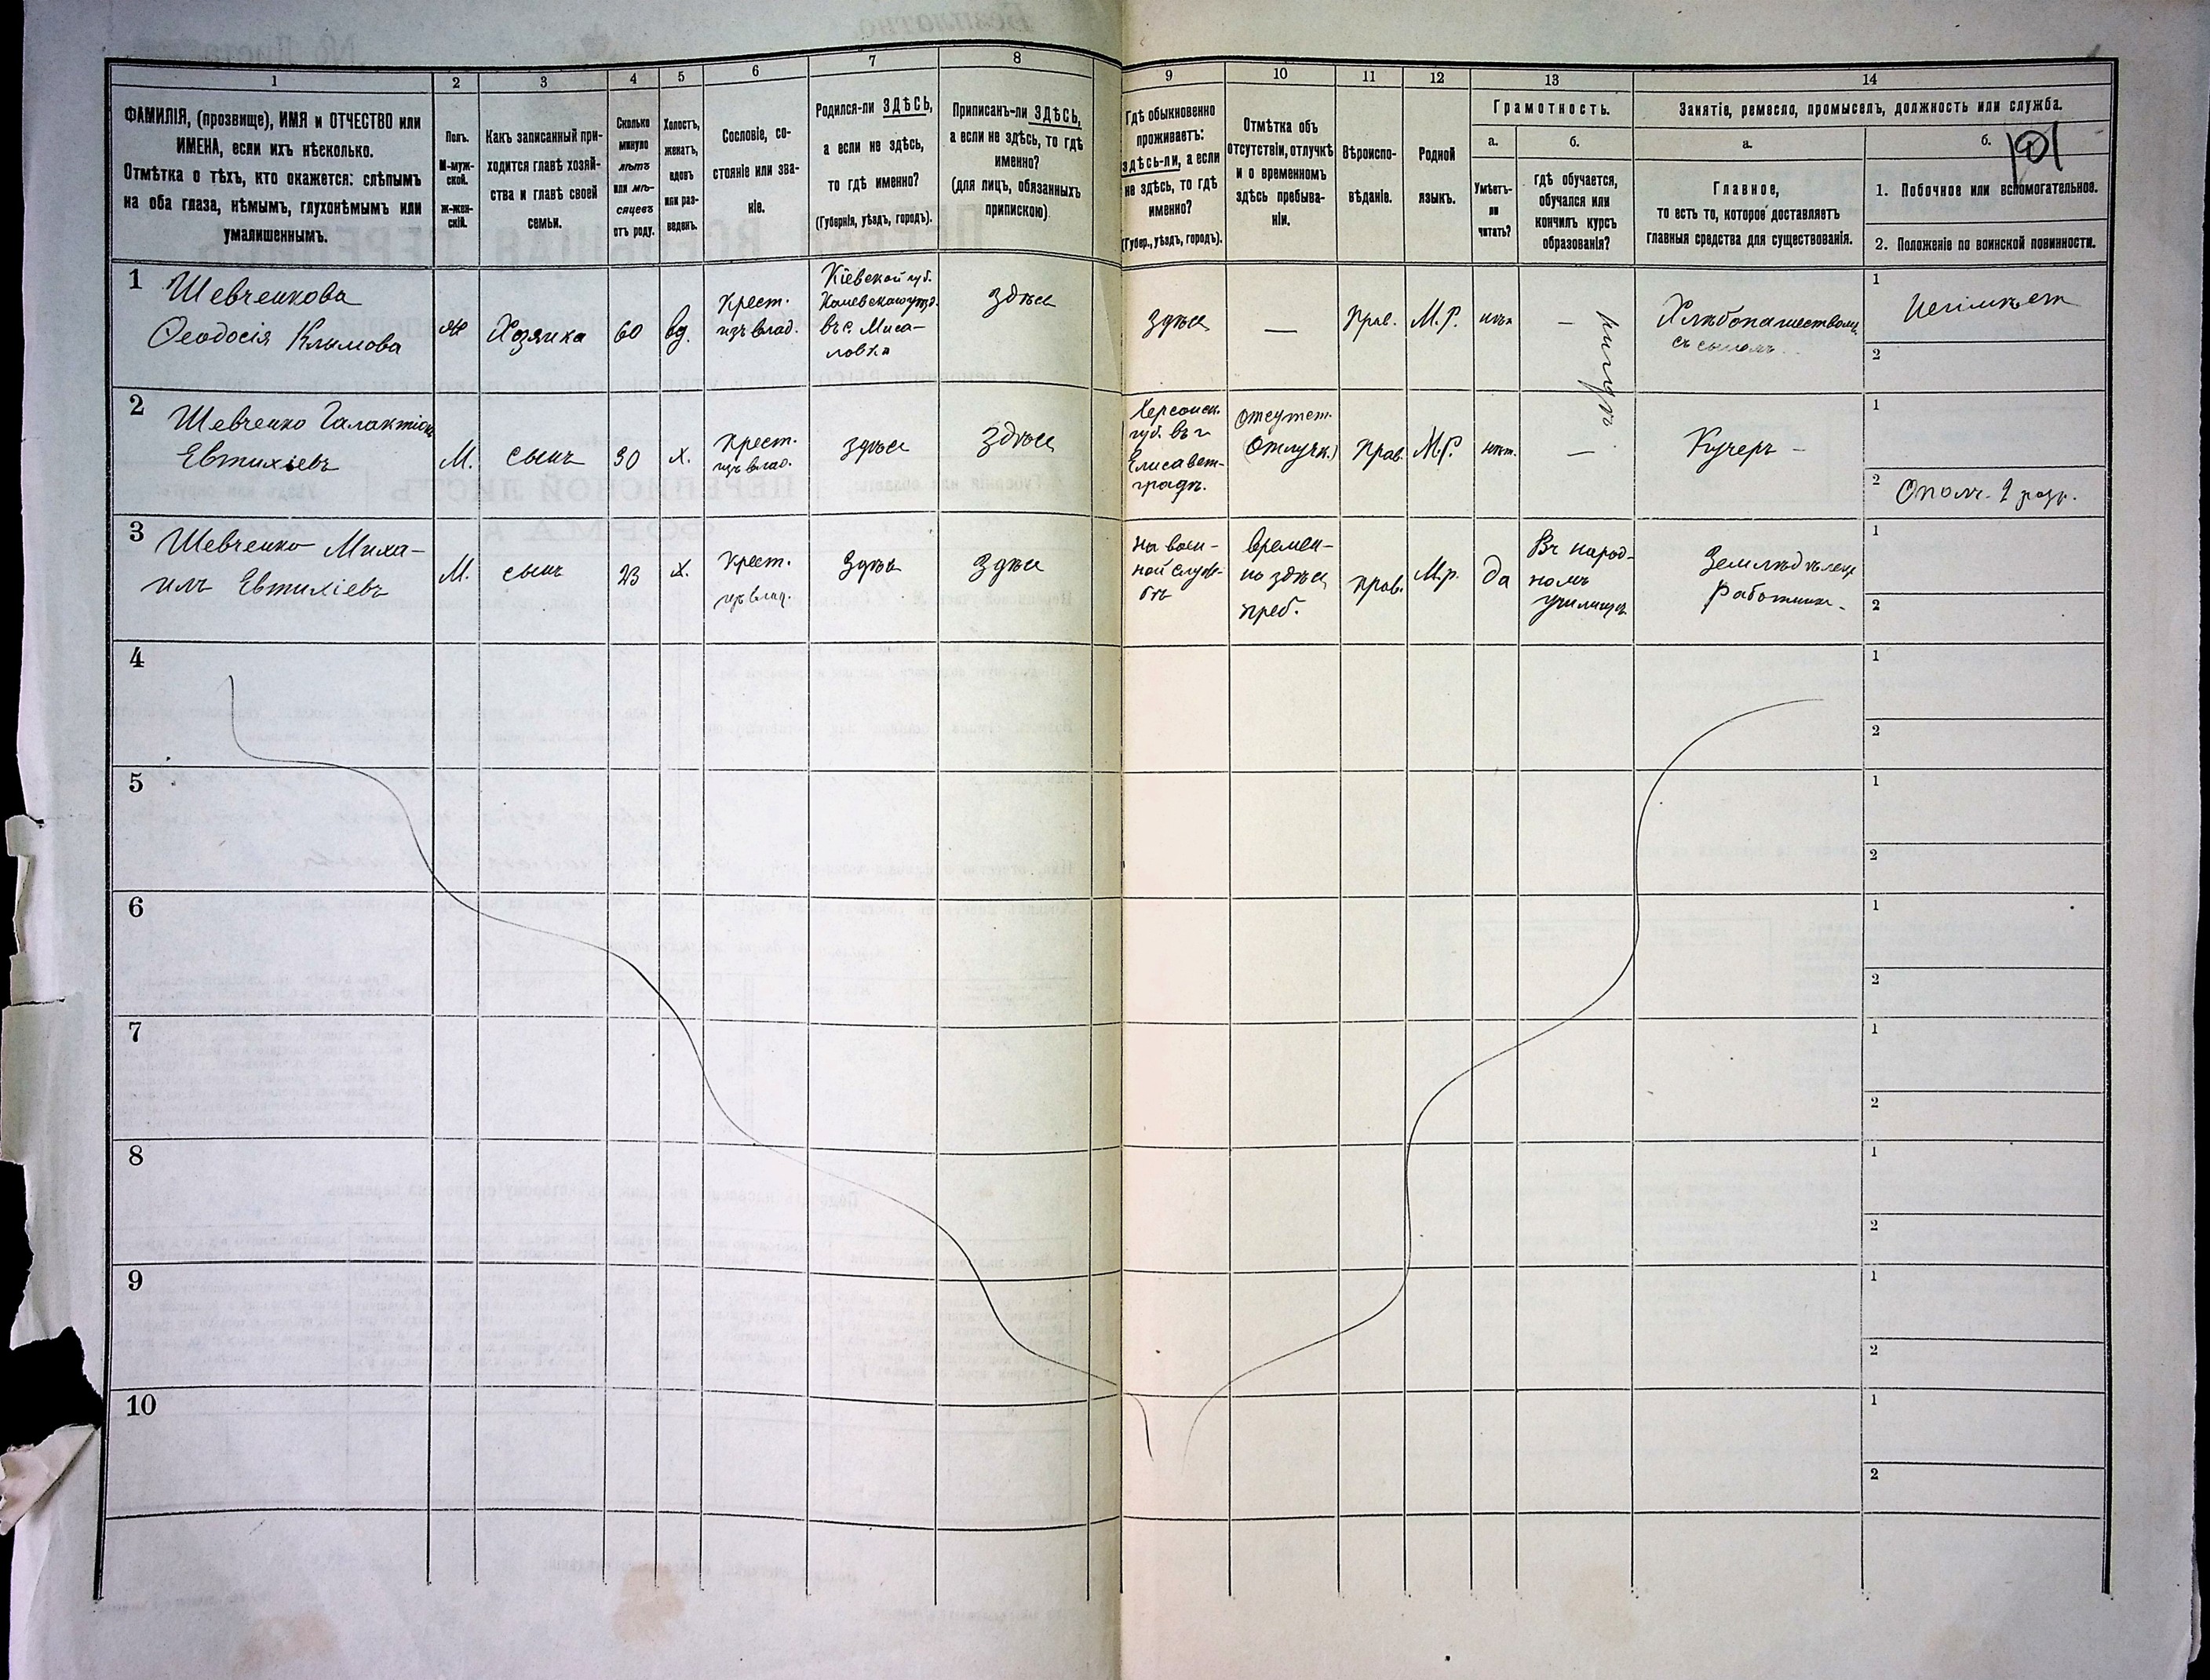 1 2 3 4 5 6 7 8 9 10 11 12 13 14
ФАМИЛІЯ, (прозвище), ИМЯ и ОТЧЕСТВО или
ИМЕНА, если ихъ нѣсколько.
Отмѣтка о тѣхъ, кто окажется: слѣпымъ
на оба глаза, нѣмымъ, глухонѣмымъ или
умалишеннымъ.
Полъ.
М-муж-
ской.
ж-жен-
скій.
Какъ записанный при-
ходится главѣ хозяй-
ства и главѣ своей
семьи.
Сколько
минуло
лѣтъ
или мѣ-
сяцевъ
отъ роду.
Холостъ,
женатъ,
вдовъ
или раз-
веденъ.
Сословіе, со-
стояніе или зва-
ніе.
Родился-ли ЗДѢСЬ,
а если не здѣсь,
то гдѣ именно?
(Губернія, уѣздъ, городъ).
Приписанъ-ли ЗДѢСЬ,
а если не здѣсь, то гдѣ
именно?
(для лицъ, обязанныхъ
припискою)
Гдѣ обыкновенно
проживаетъ:
здѣсь-ли, а если
не здѣсь, то гдѣ
именно?
(Губер., уѣздъ, городъ).
Отмѣтка объ
отсутствіи, отлучкѣ
и о временномъ
здѣсь пребыва-
ніи.
Вѣроиспо-
вѣданіе.
Родной
языкъ.
Грамотность.
а.
Умѣетъ-
ли
читать?
б.
гдѣ обучается,
обучался или
кончилъ курсъ
образованія?
Занятіе, ремесло, промыселъ, должность или служба.
а.
Главное,
то есть то, которое доставляетъ
главныя средства для существованія.
б.
101
1. Побочное или вспомогательное.
2. Положеніе по воинской повинности.
1
Шевченкова
Феодосія Климова
ж
Хозяйка
60
вд.
Крест.
изъ влад.
Кіевской губ.
Каневскаго уѣзд.
въ с. Миса-
ловка
здѣсь
здѣсь
—
Прав.
М.Р.
нѣтъ
—
Хлѣбопашествомъ
съ сыномъ
1
2
2
Шевченко Галактіонъ
Евтихіевъ
М.
сынъ
30
х.
Крест.
изъ влад.
здѣсь
здѣсь
Херсонск.
губ. въ г.
Елисавет-
градѣ.
Отсутст.
(Отлучк.)
Прав.
М.Р.
нѣт.
—
Кучеръ —
1
2 Ополч. 1 разр.
3
Шевченко Миха-
илъ Евтихіевъ
М.
сынъ
23
х.
Крест.
изъ влад.
Здѣсь
Здѣсь
На воен-
ной служ-
бѣ
Времен-
но здѣсь
преб.
прав.
М.р.
да
Въ народ-
номъ
училищѣ
Земледѣлец
Работник.
1
2
4
1
2
5
1
2
6
1
2
7
1
2
8
1
2
9
1
2
10
1
2